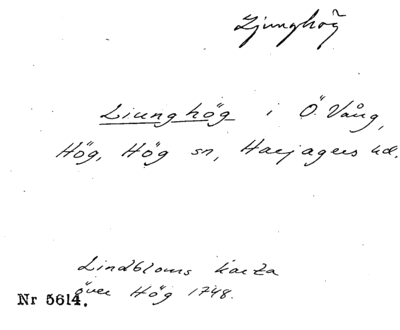 Ljunghög
Liunghög i Ö. Vång,
Hög, Hög sn, Harjagers hd.
Lindbloms karta
över Hög 1748.
Nr 5614.